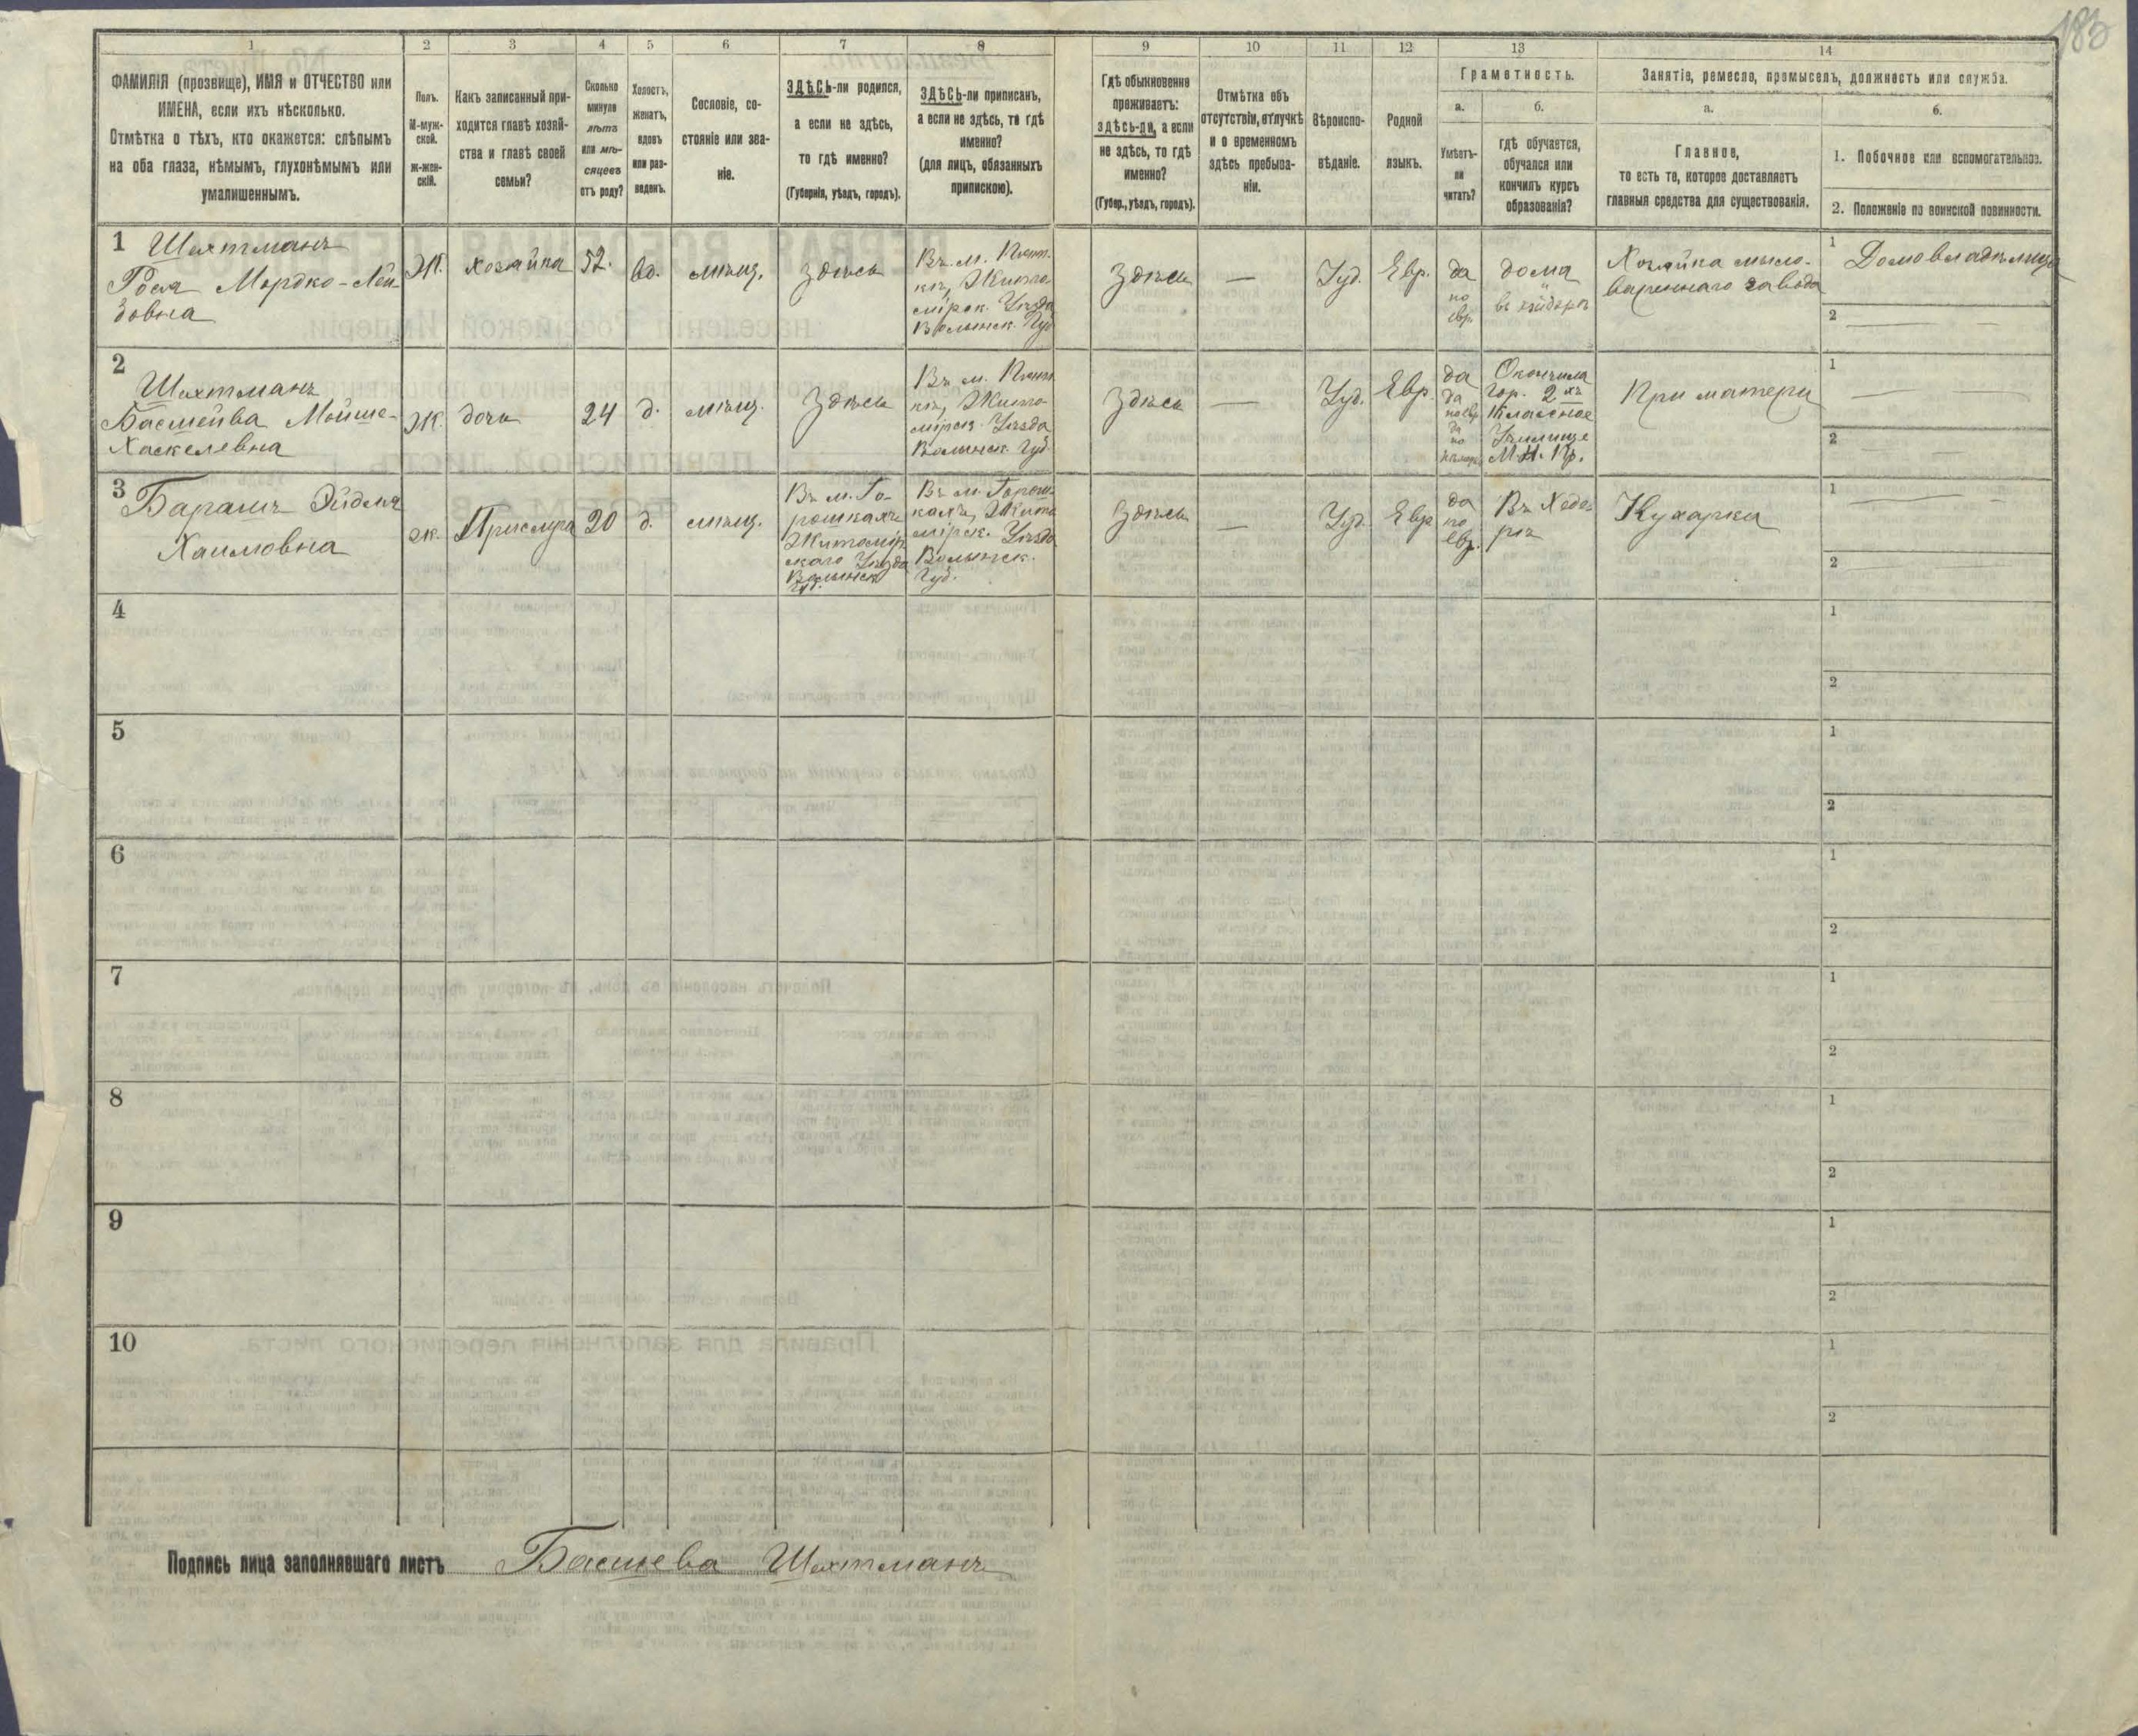 183
1
2
3
4
5
6
7
8
9
10
11
12
13
14
ФАМИЛІЯ (прозвище), ИМЯ и ОТЧЕСТВО или
ИМЕНА, если ихъ нѣсколько.
Отмѣтка о тѣхъ, кто окажется: слѣпымъ
на оба глаза, нѣмымъ, глухонѣмымъ или
умалишеннымъ.
Полъ.
М-муж-
ской.
Ж-жен-
скій.
Какъ записанный при-
ходится главѣ хозяй-
ства и главѣ своей
семьи?
Сколько
минуло
лѣтъ
или мѣ-
сяцевъ
отъ роду?
Холостъ,
женатъ,
вдовъ
или раз-
веденъ.
Сословіе, со-
стояніе или зва-
ніе.
ЗДѢСЬ-ли родился,
а если не здѣсь,
то гдѣ именно?
(Губернія, уѣздъ, городъ).
ЗДѢСЬ-ли приписанъ,
а если не здѣсь, то гдѣ
именно?
(для лицъ, обязанныхъ
припискою).
Гдѣ обыкновенно
проживаетъ:
здѣсь-ли, а если
не здѣсь, то гдѣ
именно?
(Губер., уѣздъ, городъ).
Отмѣтка объ
отсутствіи, отлучкѣ
и о временномъ
здѣсь пребыва-
ніи.
Вѣроиспо-
вѣданіе.
Родной
языкъ.
Грамотность.
а.
Умѣетъ-
ли
читать?
б.
гдѣ обучается,
обучался или
кончилъ курсъ
образованія?
Занятіе, ремесло, промыселъ, должность или служба.
а.
Главное,
то есть то, которое доставляетъ
главныя средства для существованія.
б.
1. Побочное или вспомогательное.
2. Положеніе по воинской повинности.
1
Шехтманъ
Рося Мордко-Лей
зовна
Ж.
хозяйка
52.
вд.
мѣщ.
Здѣсь
Житомірск. Уѣзда
Волынск. Губ
Здѣсь
—
Іуд.
Евр.
да
по
евр.
дома
Хозяйка мыло-
вареннаго завода
1
Домовладѣлица
2
2
Шехтманъ
Басшейва Мойше-
Хаскелевна
Ж.
дочь
24
д.
мѣщ.
Здѣсь
Волынск. Губ.
Здѣсь
—
Іуд.
Евр.
да
да
по евр.
да
по
Окончила
Гор. 2хъ
Классное
Училище
М. Н. Пр.
При матери
1
2
3
Баранъ Эйдля
Хаимовна
ж.
Прислуга
20
д.
мѣщ.
Въ м. Го-
рошкахъ
Житомір
скаго Уѣзда
Волынск
Губ.
Въ м. Горош-
кахъ, Житом
мірск. Уѣзда
Волынск.
Губ.
Здѣсь
—
Іуд.
Евр
да
по
евр.
Въ Хеде-
рѣ
Кухарка
1
2
4
1
2
5
1
2
6
1
2
7
1
2
8
1
2
9
1
2
10
1
2
Подпись лица заполнявшаго листъ Басшева Шехтманъ